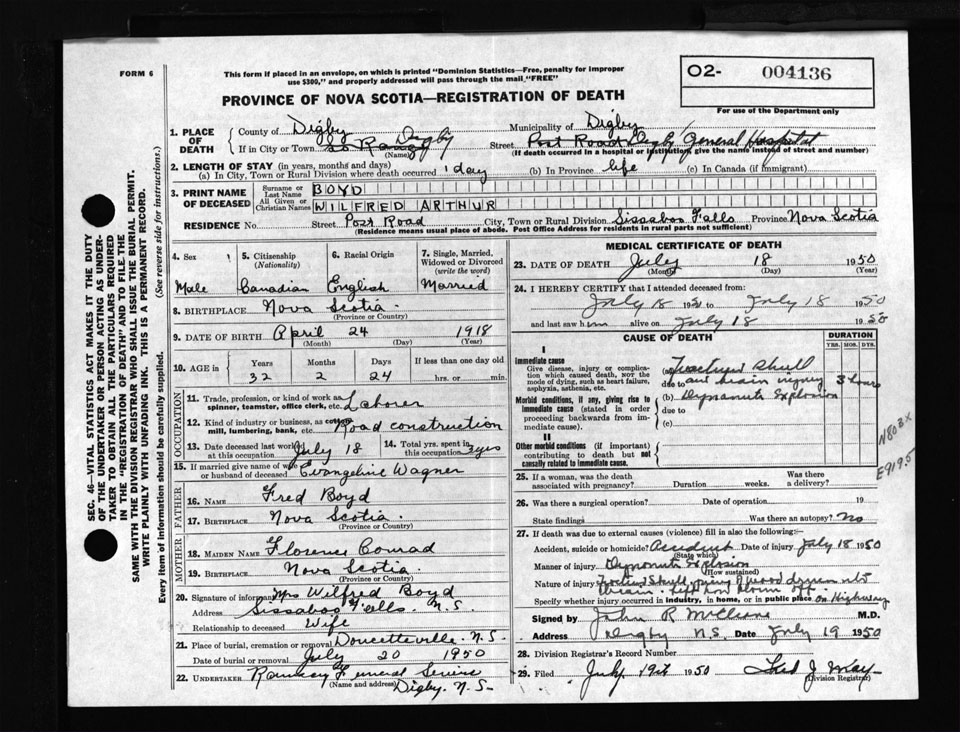 FORM 6
This form if placed in an envelope, on which is printed "Dominion Statistics—Free, penalty for improper
use $300," and properly addressed will pass through the mail "FREE"
O2- 004136
For use of the Department only
PROVINCE OF NOVA SCOTIA—REGISTRATION OF DEATH
1. PLACE OF DEATH
County of Digby Municipality of Digby
If in City or Town Digby Street Post Road Digby General Hospital
(Name) (If death occurred in a hospital or institution, give the name instead of street and number)
2. LENGTH OF STAY (in years, months and days)
(a) In City, Town or Rural Division where death occurred 1 day (b) In Province life (c) In Canada (if immigrant)
3. PRINT NAME OF DECEASED
Surname or Last Name BOYD
All Given or Christian Names WILFRED ARTHUR
RESIDENCE No. Street Post Road City, Town or Rural Division Sissaboo Falls Province Nova Scotia
(Residence means usual place of abode. Post Office Address for residents in rural parts not sufficient)
4. Sex Male
5. Citizenship (Nationality) Canadian
6. Racial Origin English
7. Single, Married, Widowed or Divorced (write the word) Married
8. BIRTHPLACE Nova Scotia
(Province or Country)
9. DATE OF BIRTH April 24 1918
(Month) (Day) (Year)
10. AGE in Years Months Days If less than one day old
32 2 24 hrs. or min.
OCCUPATION
11. Trade, profession, or kind of work as spinner, teamster, office clerk, etc. Laborer
12. Kind of industry or business, as cotton mill, lumbering, bank, etc. Road construction
13. Date deceased last worked at this occupation July 18
14. Total yrs. spent in this occupation 3 yrs
15. If married give name of wife or husband of deceased Evangeline Wagner
FATHER
16. NAME Fred Boyd
17. BIRTHPLACE Nova Scotia
(Province or Country)
MOTHER
18. MAIDEN NAME Florence Conrad
19. BIRTHPLACE Nova Scotia
(Province or Country)
20. Signature of informant Mrs Wilfred Boyd
Address Sissaboo Falls. N.S.
Relationship to deceased Wife
21. Place of burial, cremation or removal Doucetteville. N.S.
Date of burial or removal July 20 1950
22. UNDERTAKER Ramsay Funeral Service
(Name and address) Digby. N.S.
MEDICAL CERTIFICATE OF DEATH
23. DATE OF DEATH July 18 1950
(Month) (Day) (Year)
24. I HEREBY CERTIFY that I attended deceased from:
July 18 1950 to July 18 1950
and last saw him alive on July 18 1950
CAUSE OF DEATH DURATION
YRS. MOS. DYS.
I
Immediate cause
Give disease, injury or complication which caused death, not the mode of dying, such as heart failure, asphyxia, asthenia, etc.
(a) Fractured Skull
due to and brain injury 3 hours
Morbid conditions, if any, giving rise to immediate cause (stated in order proceeding backwards from immediate cause).
(b) Dynamite Explosion
due to
(c)
II
Other morbid conditions (if important) contributing to death but not causally related to immediate cause.
N803X
E919.5
25. If a woman, was the death associated with pregnancy? Duration weeks. Was there a delivery?
26. Was there a surgical operation? Date of operation 19
State findings Was there an autopsy? No
27. If death was due to external causes (violence) fill in also the following:—
Accident, suicide or homicide? Accident Date of injury July 18 1950
(State which)
Manner of injury Dynamite Explosion
(How sustained)
Nature of injury Fractured Skull, piece of wood driven into
brain. Left blown off.
Specify whether injury occurred in industry, in home, or in public place On Highway
Signed by John R McCleave M.D.
Address Digby N.S. Date July 19 1950
28. Division Registrar's Record Number
29. Filed July 19th 1950
(Division Registrar)
SEC. 46—VITAL STATISTICS ACT MAKES IT THE DUTY
OF THE UNDERTAKER OR PERSON ACTING AS UNDERTAKER
TO OBTAIN ALL THE PARTICULARS REQUIRED
IN THE "REGISTRATION OF DEATH" AND TO FILE THE
SAME WITH THE DIVISION REGISTRAR WHO SHALL ISSUE THE BURIAL PERMIT.
WRITE PLAINLY WITH UNFADING INK. THIS IS A PERMANENT RECORD.
Every item of information should be carefully supplied. (See reverse side for instructions.)